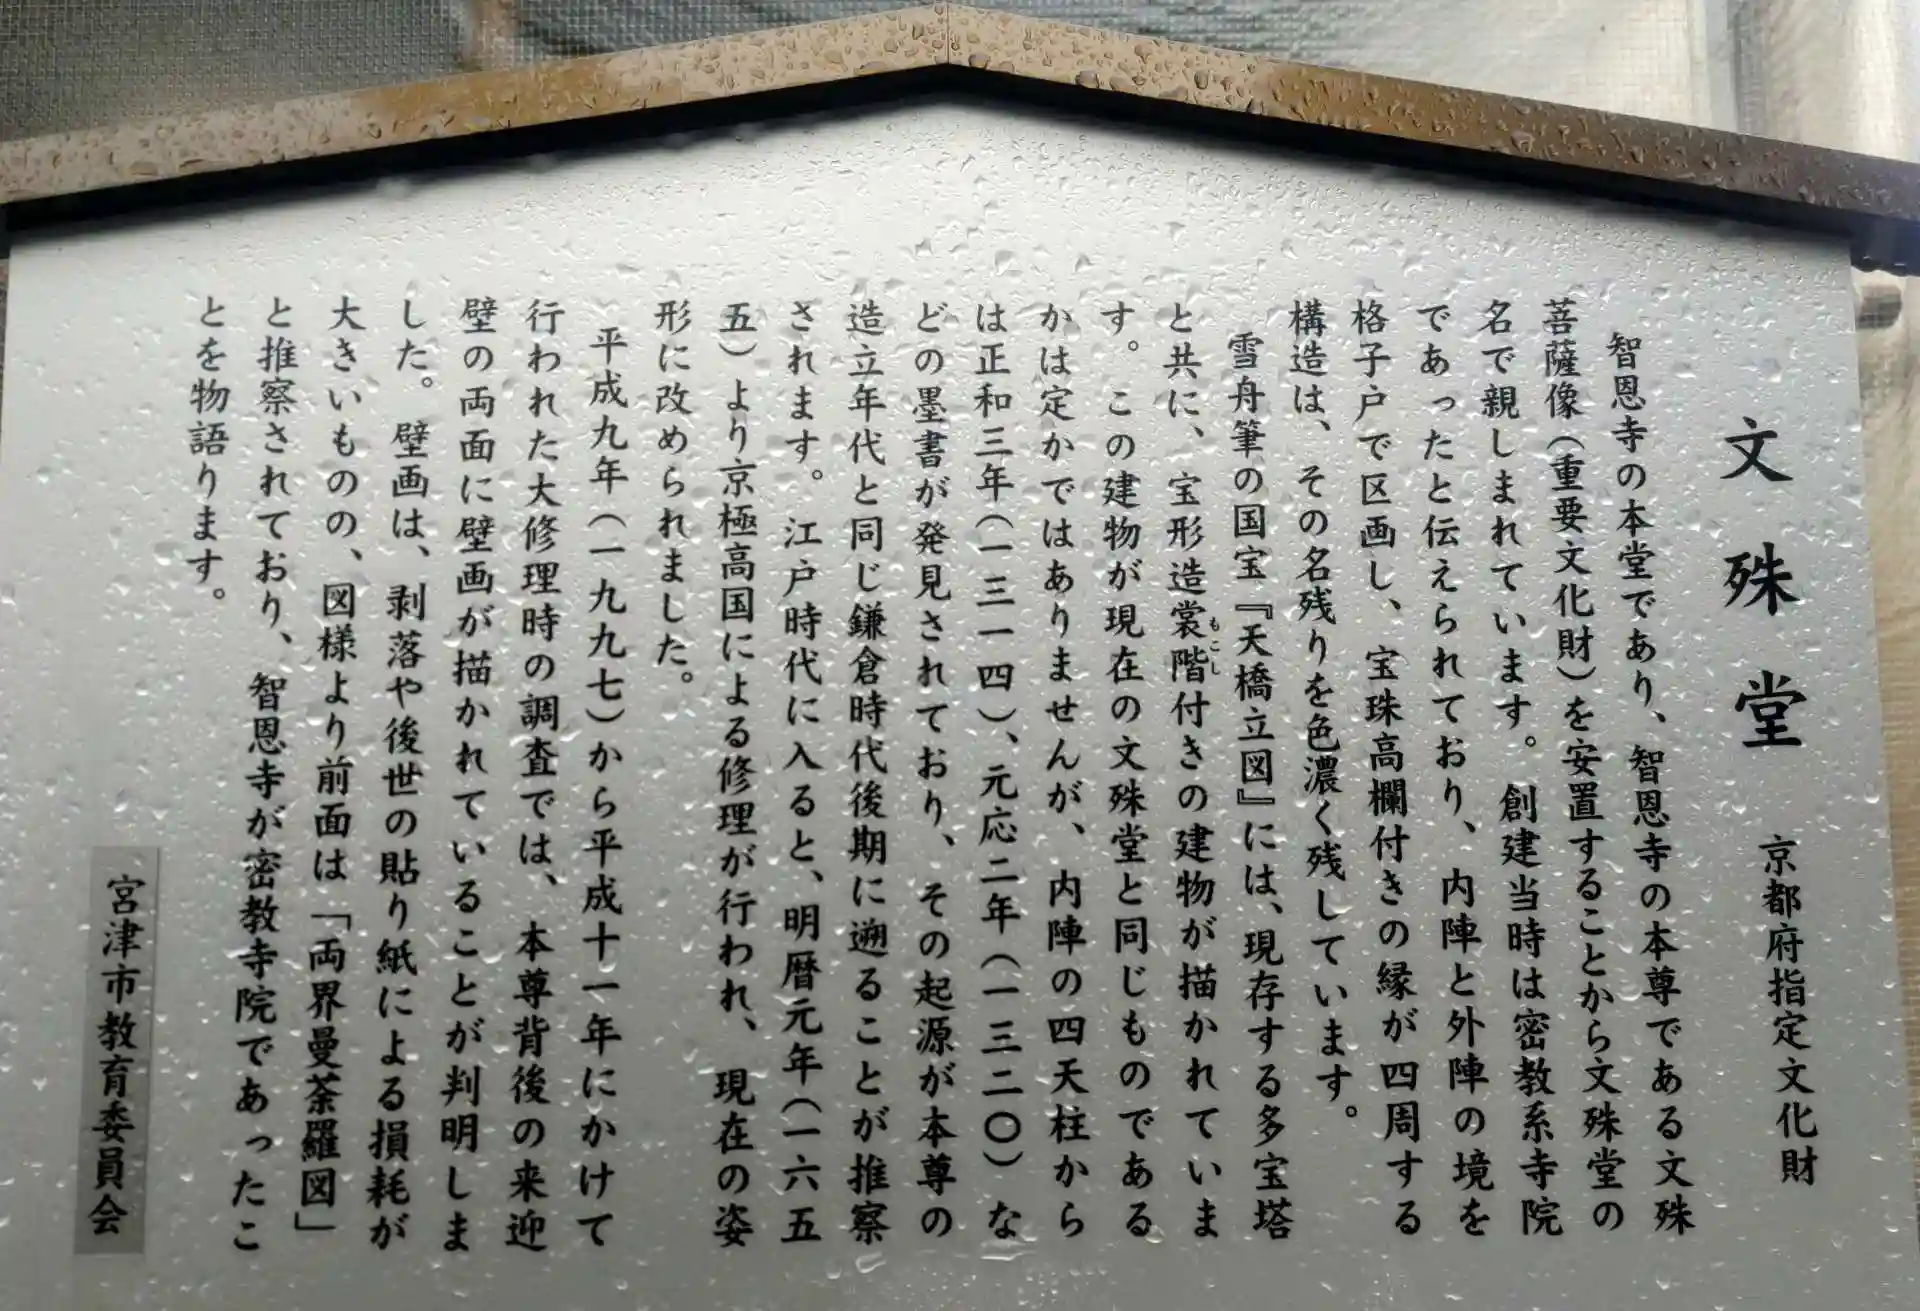 文殊堂 京都府指定文化財
智恩寺の本堂であり、智恩寺の本尊である文殊
菩薩像（重要文化財）を安置することから文殊堂の
名で親しまれています。創建当時は密教系寺院
であったと伝えられており、内陣と外陣の境を
格子戸で区画し、宝珠高欄付きの縁が四周する
構造は、その名残りを色濃く残しています。
雪舟筆の国宝『天橋立図』には、現存する多宝塔
と共に、宝形造裳階付きの建物が描かれていま
もこし
す。この建物が現在の文殊堂と同じものである
かは定かではありませんが、内陣の四天柱から
は正和三年（一三一四）、元応二年（一三二〇）な
どの墨書が発見されており、その起源が本尊の
造立年代と同じ鎌倉時代後期に遡ることが推察
されます。江戸時代に入ると、明暦元年（一六五
五）より京極高国による修理が行われ、現在の姿
形に改められました。
平成九年（一九九七）から平成十一年にかけて
行われた大修理時の調査では、本尊背後の来迎
壁の両面に壁画が描かれていることが判明しま
した。壁画は、剥落や後世の貼り紙による損耗が
大きいものの、図様より前面は「両界曼荼羅図」
と推察されており、智恩寺が密教寺院であったこ
とを物語ります。
宮津市教育委員会